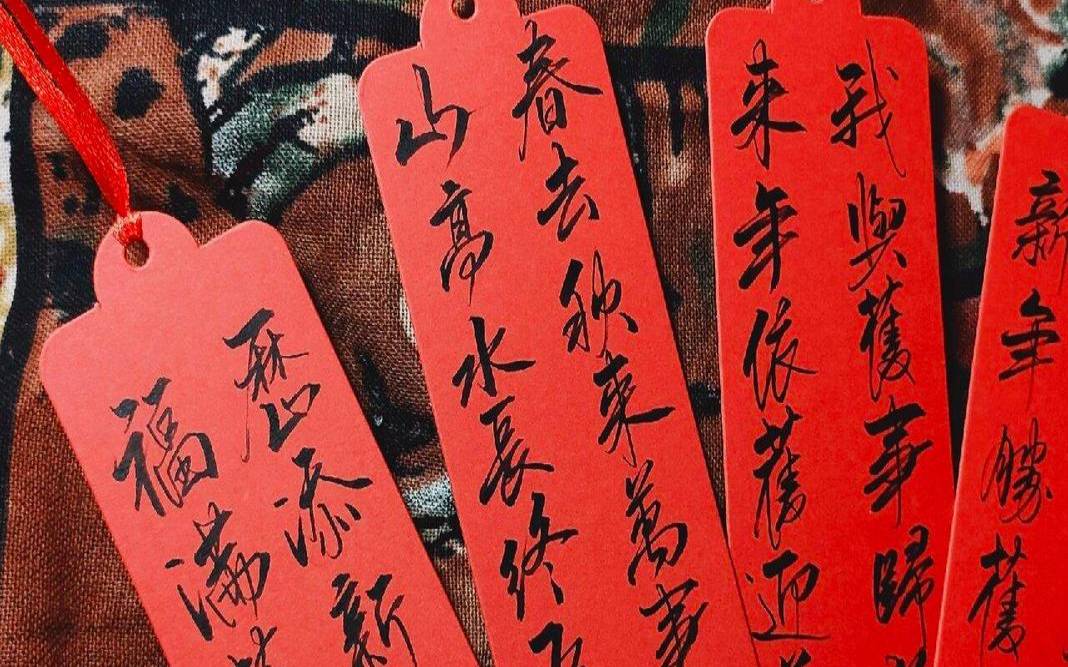 歷添新
福滿
春去秋來萬事
山高水長終
我與舊事歸
來年依舊迎
新年勝舊